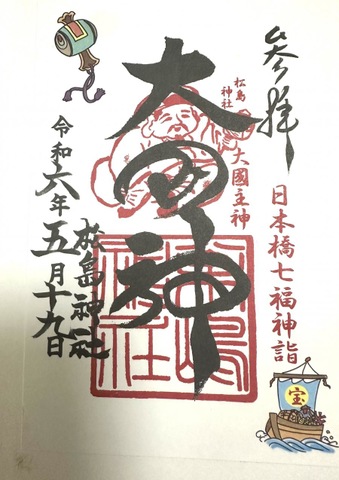 参拝
日本橋七福神詣
松島
神社
大國主神
大国神
松島神社
松島
神社
令和六年五月十九日
宝